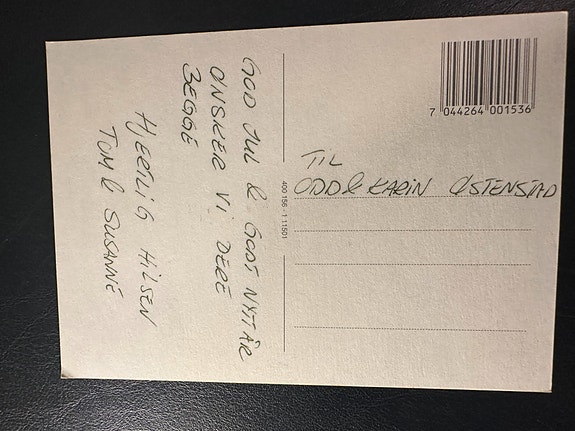 GOD JUL & GODT NYTTÅR
ØNSKER VI DERE
BEGGE
HJERTLIG HILSEN
TOM & SUSANNE
400 156 - 1 11501
7 044264 001536
TIL
ODD & KARIN ØSTENSTAD